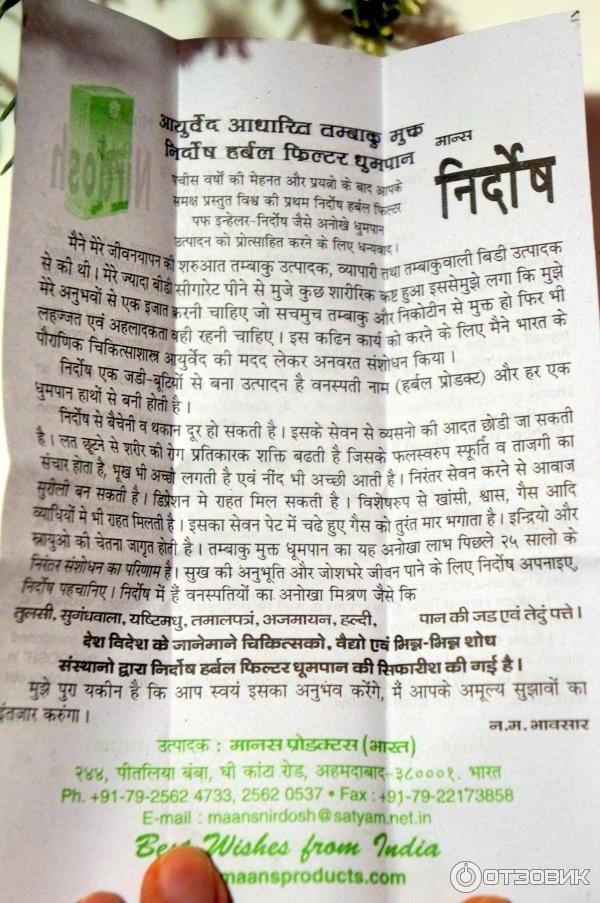 आयुर्वेद आधारित तम्बाकु मुक्त
निर्दोष हर्बल फिल्टर धुमपान
मान्स
निर्दोष
पच्चीस वर्षों की मेहनत और प्रयत्नो के बाद आपके
समक्ष प्रस्तुत विश्व की प्रथम निर्दोष हर्बल फिल्टर
पफ इन्हेलर-निर्दोष जैसे अनोखे धुमपान
उत्पादन को प्रोत्साहित करने के लिए धन्यवाद।
मैने मेरे जीवनयापन की शरुआत तम्बाकु उत्पादक, व्यापारी तथा तम्बाकुवाली बिडी उत्पादक
से की थी। मेरे ज्यादा बीडी सीगारेट पीने से मुजे कुछ शारीरिक कष्ट हुआ इससेमुझे लगा कि मुझे
मेरे अनुभवों से एक इजात करनी चाहिए जो सचमुच तम्बाकु और निकोटीन से मुक्त हो फिर भी
लहज्जत एवं अहलादकता वही रहनी चाहिए। इस कढिन कार्य को करने के लिए मैने भारत के
पौराणिक चिकित्साशास्त्र आयुर्वेद की मदद लेकर अनवरत संशोधन किया।
निर्दोष एक जडी-बूटियों से बना उत्पादन है वनस्पती नाम (हर्बल प्रोडक्ट) और हर एक
धुमपान हाथों से बनी होती है।
निर्दोष से बैचेनी व थकान दूर हो सकती है। इसके सेवन से व्यसनो की आदत छोडी जा सकती
है। लत छूटने से शरीर की रोग प्रतिकारक शक्ति बढती है जिसके फलस्वरुप स्फूर्ति व ताजगी का
संचार होता है, भूख भी अच्छी लगती है एवं नींद भी अच्छी आती है। निरंतर सेवन करने से आवाज
सुरीली बन सकती है। डिप्रेशन मे राहत मिल सकती है। विशेषरुप से खांसी, श्वास, गैस आदि
व्याधियों मे भी राहत मिलती है। इसका सेवन पेट में चढे हुए गैस को तुरंत मार भगाता है। इन्द्रियो और
स्नायुओ की चेतना जागृत होती है। तम्बाकु मुक्त धूमपान का यह अनोखा लाभ पिछले २५ सालो के
निरंतर संशोधन का परिणाम है। सुख की अनुभूति और जोशभरे जीवन पाने के लिए निर्दोष अपनाइए,
निर्दोष पहचानिए। निर्दोष में हैं वनस्पतियों का अनोखा मिश्रण जैसे कि
तुलसी, सुगंधवाला, यष्टिमधु, तमालपत्रा, अजमायन, हल्दी, पान की जड एवं तेदुं पत्ते।
देश विदेश के जानेमाने चिकित्सको, वैद्यो एवं भिन्न-भिन्न शोध
संस्थानो द्वारा निर्दोष हर्बल फिल्टर धूमपान की सिफारीश की गई है।
मुझे पुरा यकीन है कि आप स्वयं इसका अनुभव करेंगे, मैं आपके अमूल्य सुझावों का
इंतजार करुंगा।
न.म. भावसार
उत्पादक : मानस प्रोडक्टस (भारत)
२४४, पीतलिया बंबा, घी कांटा रोड, अहमदाबाद-३८०००१. भारत
Ph. +91-79-2562 4733, 2562 0537 • Fax : +91-79-22173858
E-mail : maansnirdosh@satyam.net.in
Best Wishes from India
maansproducts.com
ОТЗОВИК